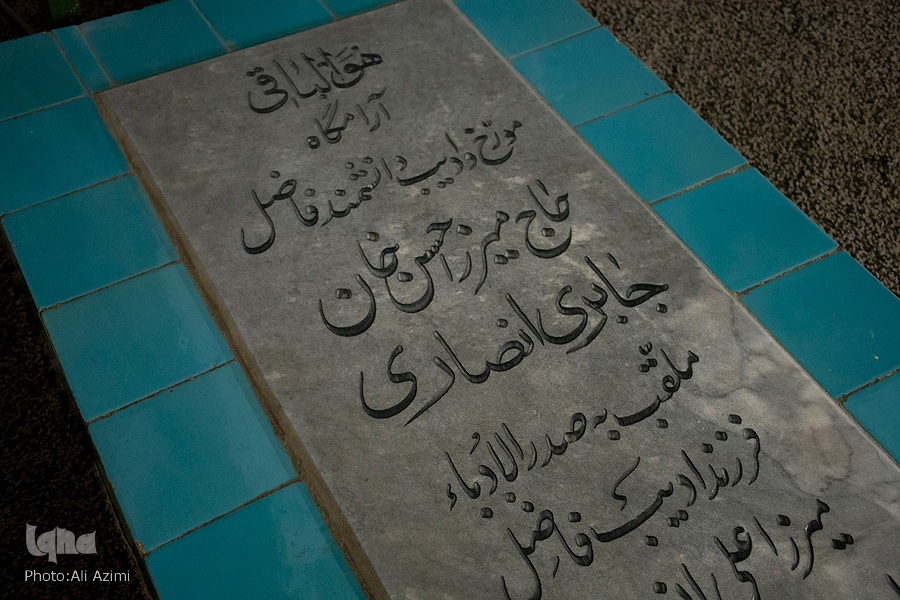 هوالباقی
آرامگاه
مورّخ و ادیب دانشمند فاضل
حاج میرزا حسن خان
جابری انصاری
ملقّب به صدرالأدباء
فرزند ادیب فاضل
میرزا علی
iqna
Photo:Ali Azimi